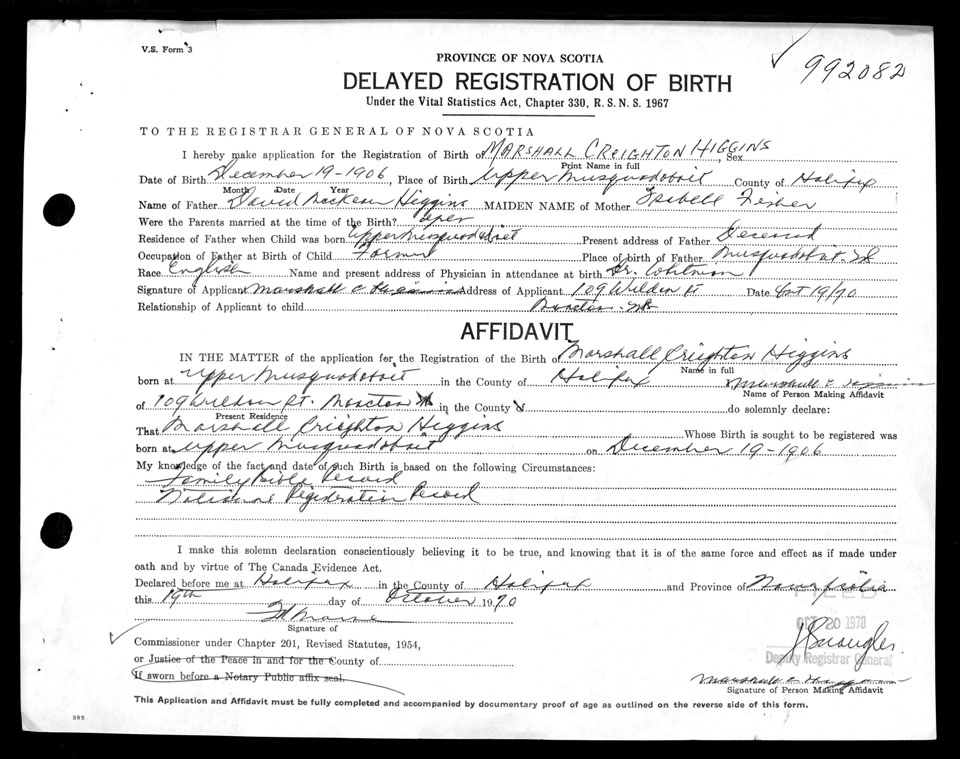 V.S. Form 3
992082
PROVINCE OF NOVA SCOTIA
DELAYED REGISTRATION OF BIRTH
Under the Vital Statistics Act, Chapter 330, R.S.N.S. 1967
TO THE REGISTRAR GENERAL OF NOVA SCOTIA
I hereby make application for the Registration of Birth of MARSHALL CREIGHTON HIGGINS, Sex
Print Name in full
Date of Birth December 19-1906, Place of Birth Upper Musquodoboit County of Halifax
Month Date Year
Name of Father David Higgins MAIDEN NAME of Mother Isabell Fisher
Were the Parents married at the time of the Birth? yes
Residence of Father when Child was born Upper Musquodoboit Present address of Father Deceased
Occupation of Father at Birth of Child Farmer Place of birth of Father Musquodoboit
Race English Name and present address of Physician in attendance at birth Dr.
Signature of Applicant Marshall C Higgins Address of Applicant 109 St Date Oct 19/70
Relationship of Applicant to child Moncton NB
AFFIDAVIT
IN THE MATTER of the application for the Registration of the Birth of Marshall Creighton Higgins
Name in full
born at Upper Musquodoboit in the County of Halifax Marshall C Higgins
Name of Person Making Affidavit
of 109 St. Moncton NB in the County of do solemnly declare:
Present Residence
That Marshall Creighton Higgins Whose Birth is sought to be registered was
born at Upper Musquodoboit on December 19-1906
My knowledge of the fact and date of such Birth is based on the following Circumstances:
Family Bible Record
National Registration Record
I make this solemn declaration conscientiously believing it to be true, and knowing that it is of the same force and effect as if made under
oath and by virtue of The Canada Evidence Act.
Declared before me at Halifax in the County of Halifax and Province of Nova Scotia
this 19th day of October 1970
FILED
OCT 20 1970
Signature of
Commissioner under Chapter 201, Revised Statutes, 1954,
or Justice of the Peace in and for the County of
Deputy Registrar General
If sworn before a Notary Public affix seal.
Marshall C Higgins
Signature of Person Making Affidavit
This Application and Affidavit must be fully completed and accompanied by documentary proof of age as outlined on the reverse side of this form.
385